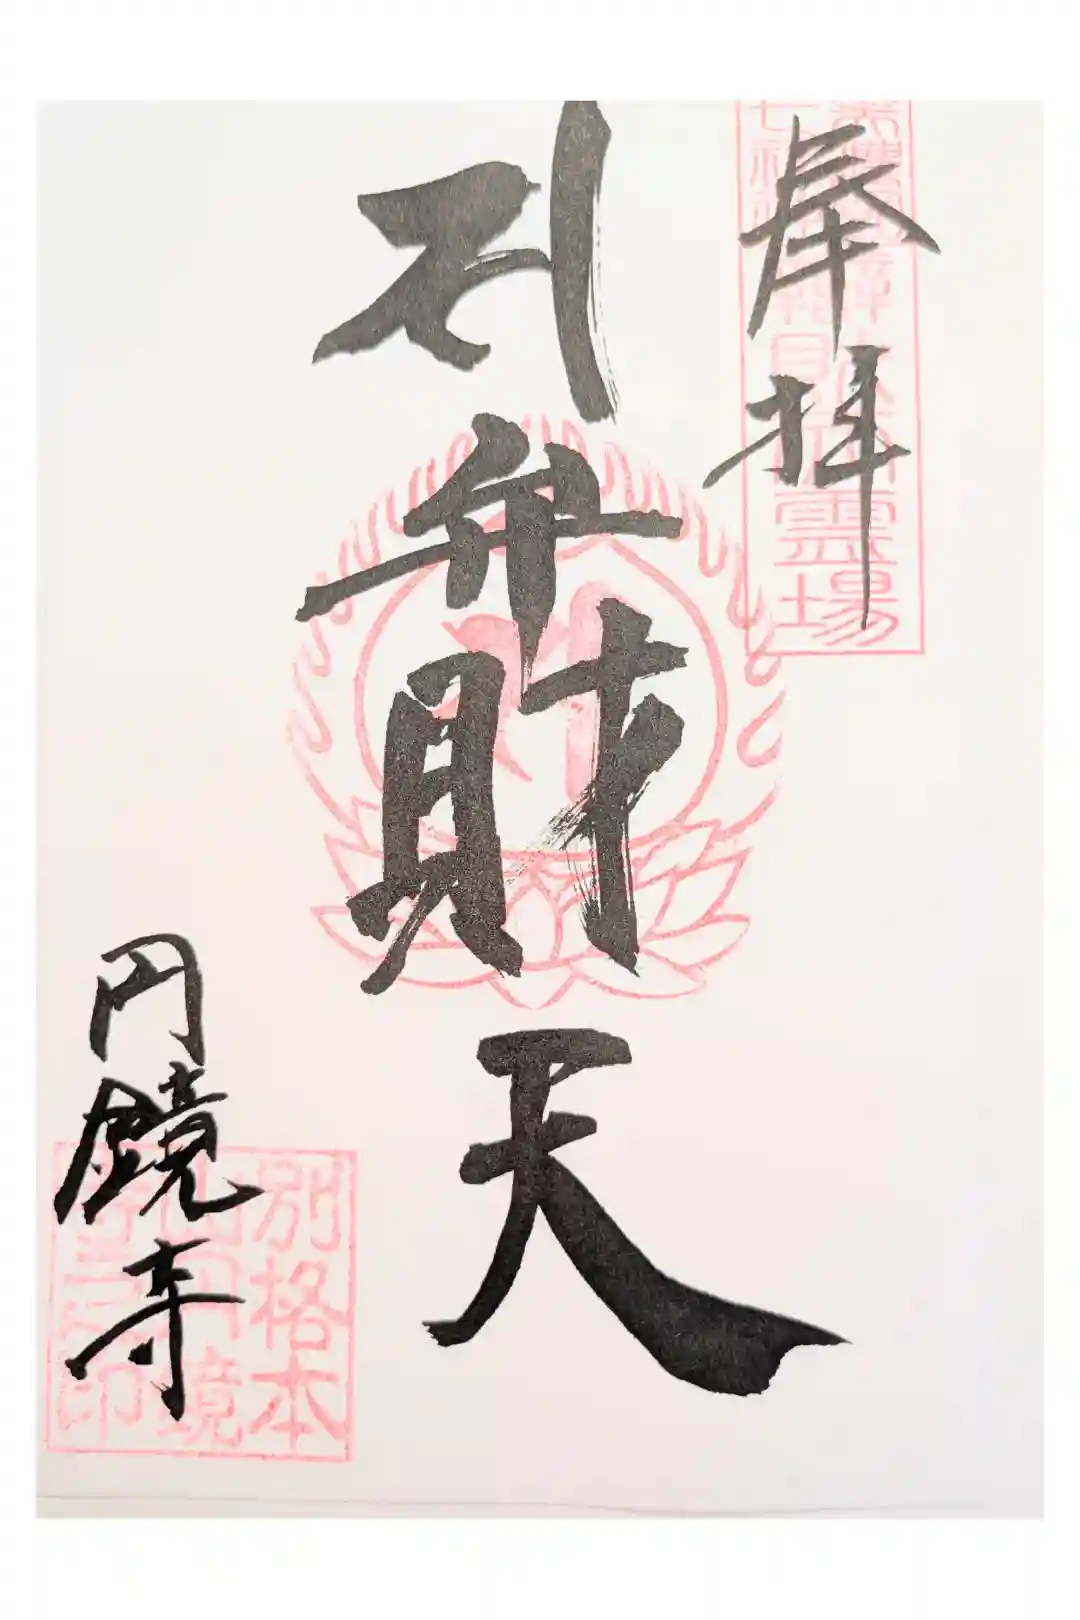 奉拝
弁財天
円鏡寺
霊場
別格本
山円鏡
寺之印